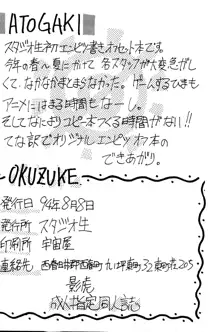 ATOGAKI
スタジオ生初のエンピツ書きオフセット本です。
今年の春〜夏にかけて各スタッフが大変急がし
くて、なかなかまとまらなかった。ゲームするひまも
アニメにはまる時間もなーし。
そしてなによりコピー本つくる時間がない!!
てな訳でオリジナルエンピツオフ本の
できあがり。
OKUZUKE
発行日 94年8月8日
発行所 スタジオ生
印刷所 宇宙屋
連絡先
影虎
成人指定同人誌